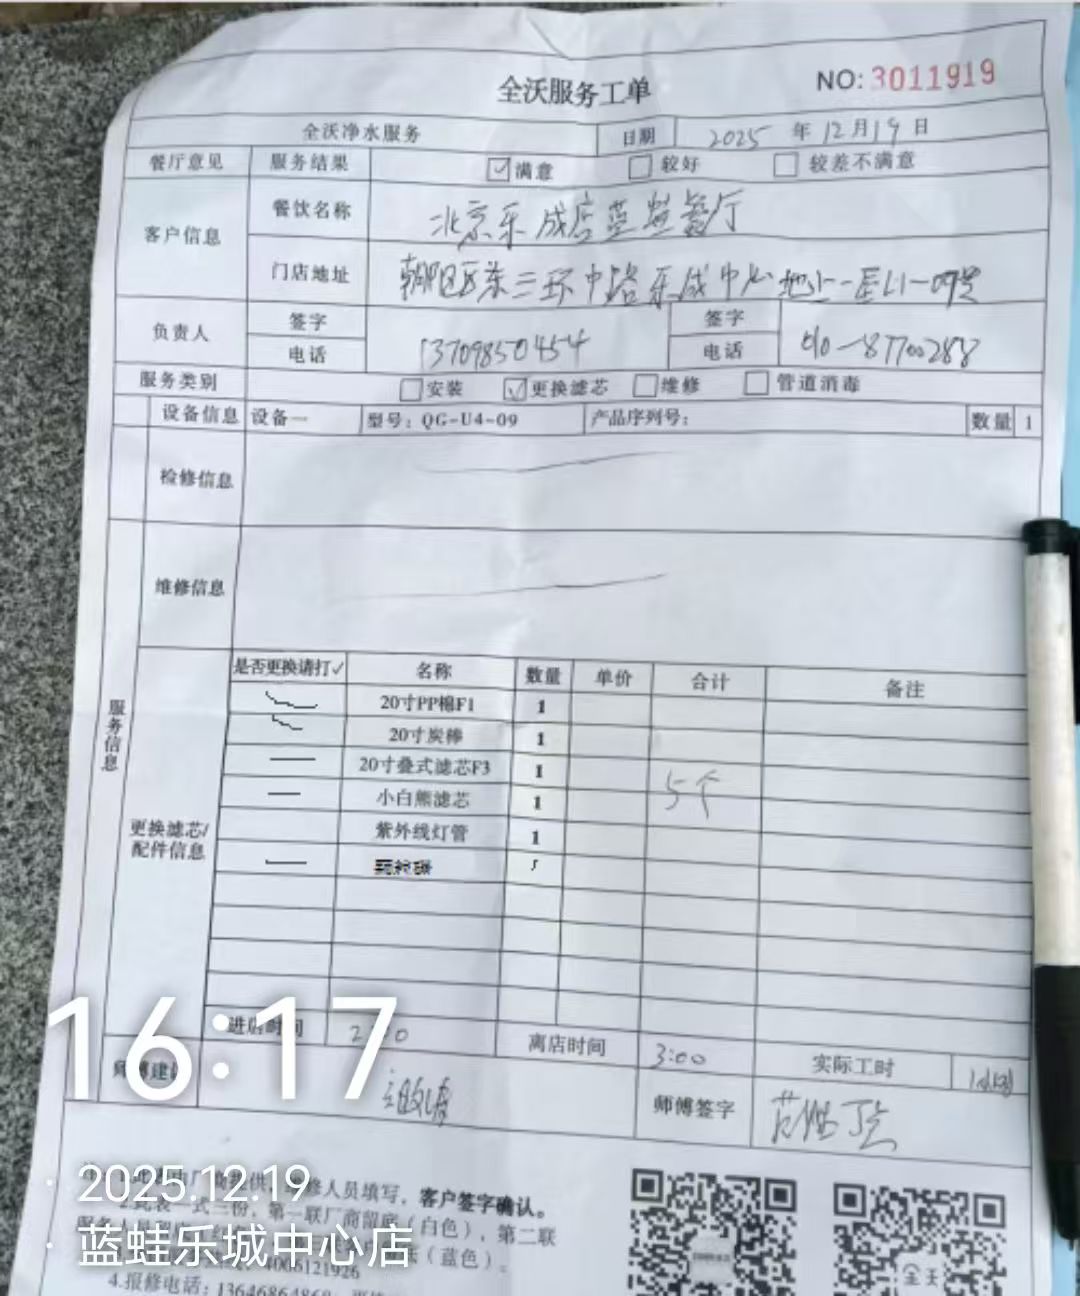 全沃服务工单
NO: 3011919
全沃净水服务 日期 2025 年 12 月 19 日
餐厅意见 服务结果 ☑满意 ☐较好 ☐较差不满意
客户信息
餐饮名称 北京乐成店蓝蛙餐厅
门店地址 朝阳区东三环中路乐成中心地上一层L1-09号
负责人 签字 签字
电话 13709850454 电话 010-87700288
服务类别 ☐安装 ☑更换滤芯 ☐维修 ☐管道消毒
设备信息 设备一 型号：QG-U4-09 产品序列号： 数量 1
检修信息
维修信息
服务信息
是否更换请打✓ 名称 数量 单价 合计 备注
20寸PP棉F1 1
20寸炭棒 1
20寸叠式滤芯F3 1
小白熊滤芯 1
5个
紫外线灯管 1
更换滤芯/
配件信息
进店时间 离店时间 3:00 实际工时
师傅建议 师傅签字
16:17
供 修人员填写，客户签字确认。
2.此表一式三份，第一联厂商留底（白色），第二联
（蓝色）。
4006121926
4.报修电话：
2025.12.19
蓝蛙乐城中心店